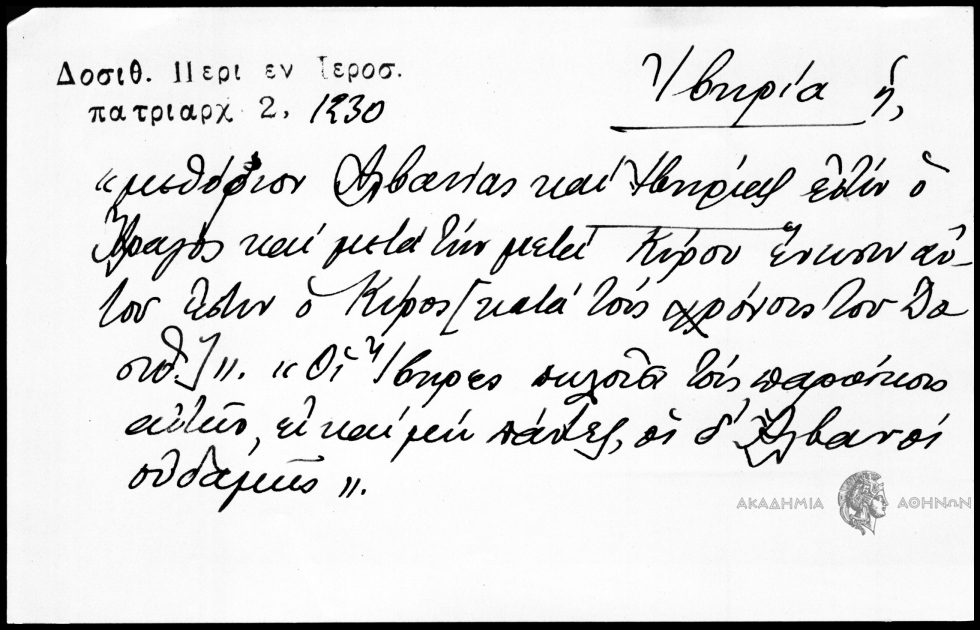 Δοσιθ. Περι εν Ιεροσ.
πατριαρχ 2, 1230
Ἰβηρία ἡ,
«μεθόριον Ἀλβανίας καί Ἰβηρίας ἐστίν ὁ
καί μετά τήν μετά Κύρου ἕνωσιν αὐ-
τοῦ ἐστιν ὁ Κῦρος [κατά τούς χρόνους τοῦ Δο
σιθ.]». «Οἱ Ἴβηρες τοῖς παροίκοις
αὐτῶν, εἰ καί μή πάντες, οἱ δ' Ἀλβανοί
οὐδαμῶς».
ΑΚΑΔΗΜΙΑ ΑΘΗΝΩΝ